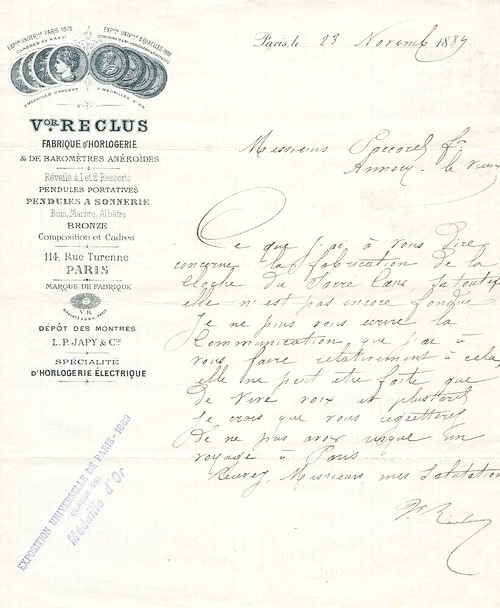 EXPON UNIVERLLE PARIS 1878
EXPON UNIVLLE BRUXELLES 1888
3 MÉDAILLES D'ARGENT
2 MÉDAILLES D'OR
VOR RECLUS
FABRIQUE D'HORLOGERIE
& DE BAROMÈTRES ANÉROÏDES
Réveils à 1 et 2 Ressorts
PENDULES PORTATIVES
PENDULES A SONNERIE
Bois, Marbre, Albâtre
BRONZE
Composition et Cadres
114, Rue Turenne
PARIS
MARQUE DE FABRIQUE
V.R
DÉPÔT DES MONTRES
L.P. JAPY & CIE
SPÉCIALITÉ
D'HORLOGERIE ÉLECTRIQUE
EXPOSITION UNIVERSELLE DE PARIS - 1889
Médaille d'Or
Paris, le 23 Novemb 1889
Messieurs Paccard f
Annecy - le vieux
Ce que j'ai à vous dire
concerne la fabrication de la
cloche du Sacré Cœur, si toutefois
elle n'est pas encore fondue
Je ne puis vous écrire la
communication que j'ai à
vous faire relativement à cela,
elle ne peut être faite que
de vive voix et
Je crois que vous regretterez
de ne pas avoir risqué un
voyage à Paris
Recevez, Messieurs mes Salutations
Vr Reclus